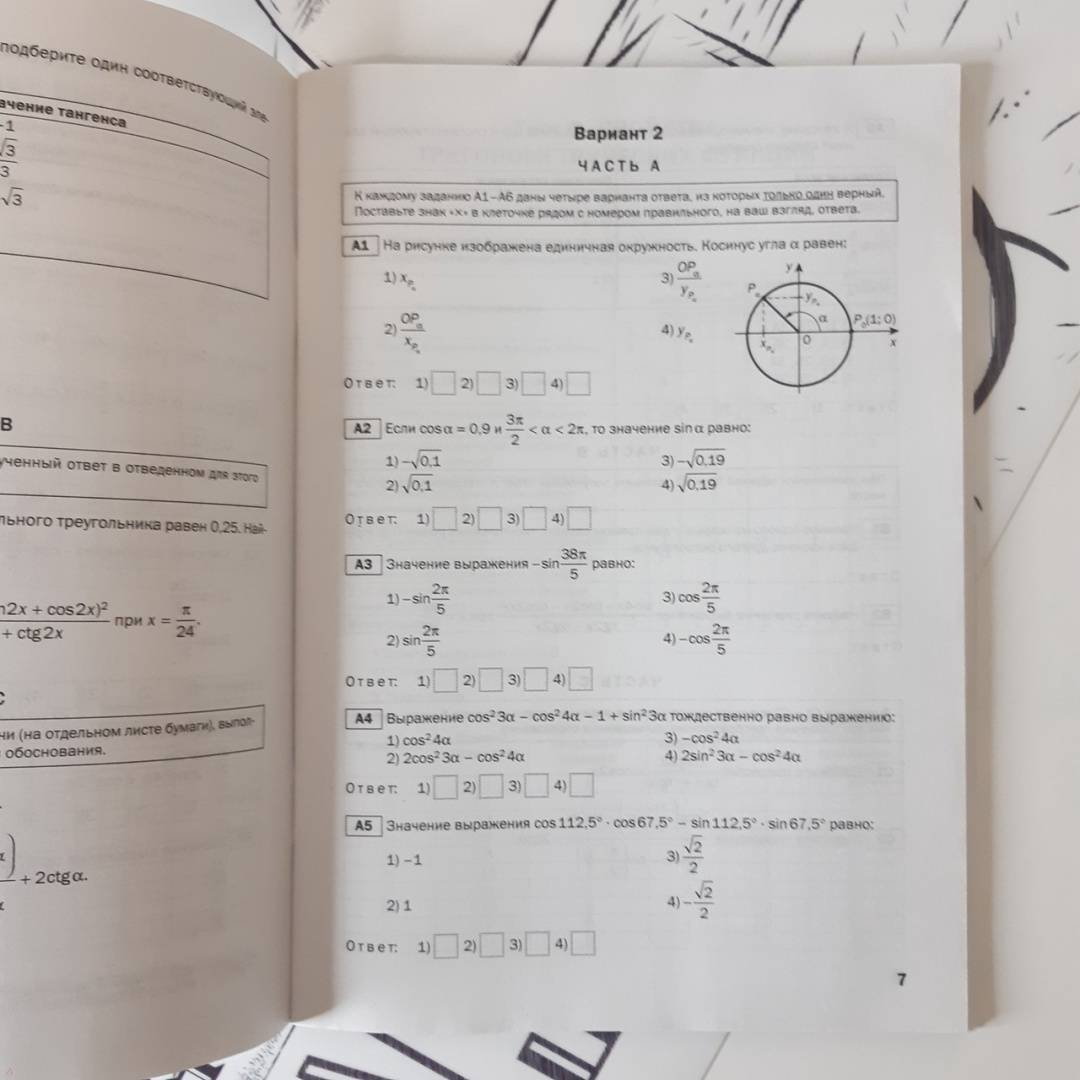 подберите один соответствующий эле-
ачение тангенса
-1
√3
3
√3
В
ученный ответ в отведенном для этого
льного треугольника равен 0,25. Най-
n2x + cos2x)²
+ ctg2x
при x = π/24.
С
чи (на отдельном листе бумаги), выпол-
обоснования.
+ 2ctgα.
Вариант 2
ЧАСТЬ А
К каждому заданию А1–А6 даны четыре варианта ответа, из которых только один верный.
Поставьте знак «×» в клеточке рядом с номером правильного, на ваш взгляд, ответа.
А1 На рисунке изображена единичная окружность. Косинус угла α равен:
1) x_Pα 3) OPα/y_Pα
2) OPα/x_Pα 4) y_Pα
y Pα y_Pα α P₀(1; 0) x_Pα O x
Ответ: 1) 2) 3) 4)
А2 Если cosα = 0,9 и 3π/2 < α < 2π, то значение sinα равно:
1) –√0,1 3) –√0,19
2) √0,1 4) √0,19
Ответ: 1) 2) 3) 4)
А3 Значение выражения –sin 38π/5 равно:
1) –sin 2π/5 3) cos 2π/5
2) sin 2π/5 4) –cos 2π/5
Ответ: 1) 2) 3) 4)
А4 Выражение cos²3α – cos²4α – 1 + sin²3α тождественно равно выражению:
1) cos²4α 3) –cos²4α
2) 2cos²3α – cos²4α 4) 2sin²3α – cos²4α
Ответ: 1) 2) 3) 4)
А5 Значение выражения cos112,5° · cos67,5° – sin112,5° · sin67,5° равно:
1) –1 3) √2/2
2) 1 4) –√2/2
Ответ: 1) 2) 3) 4)
7